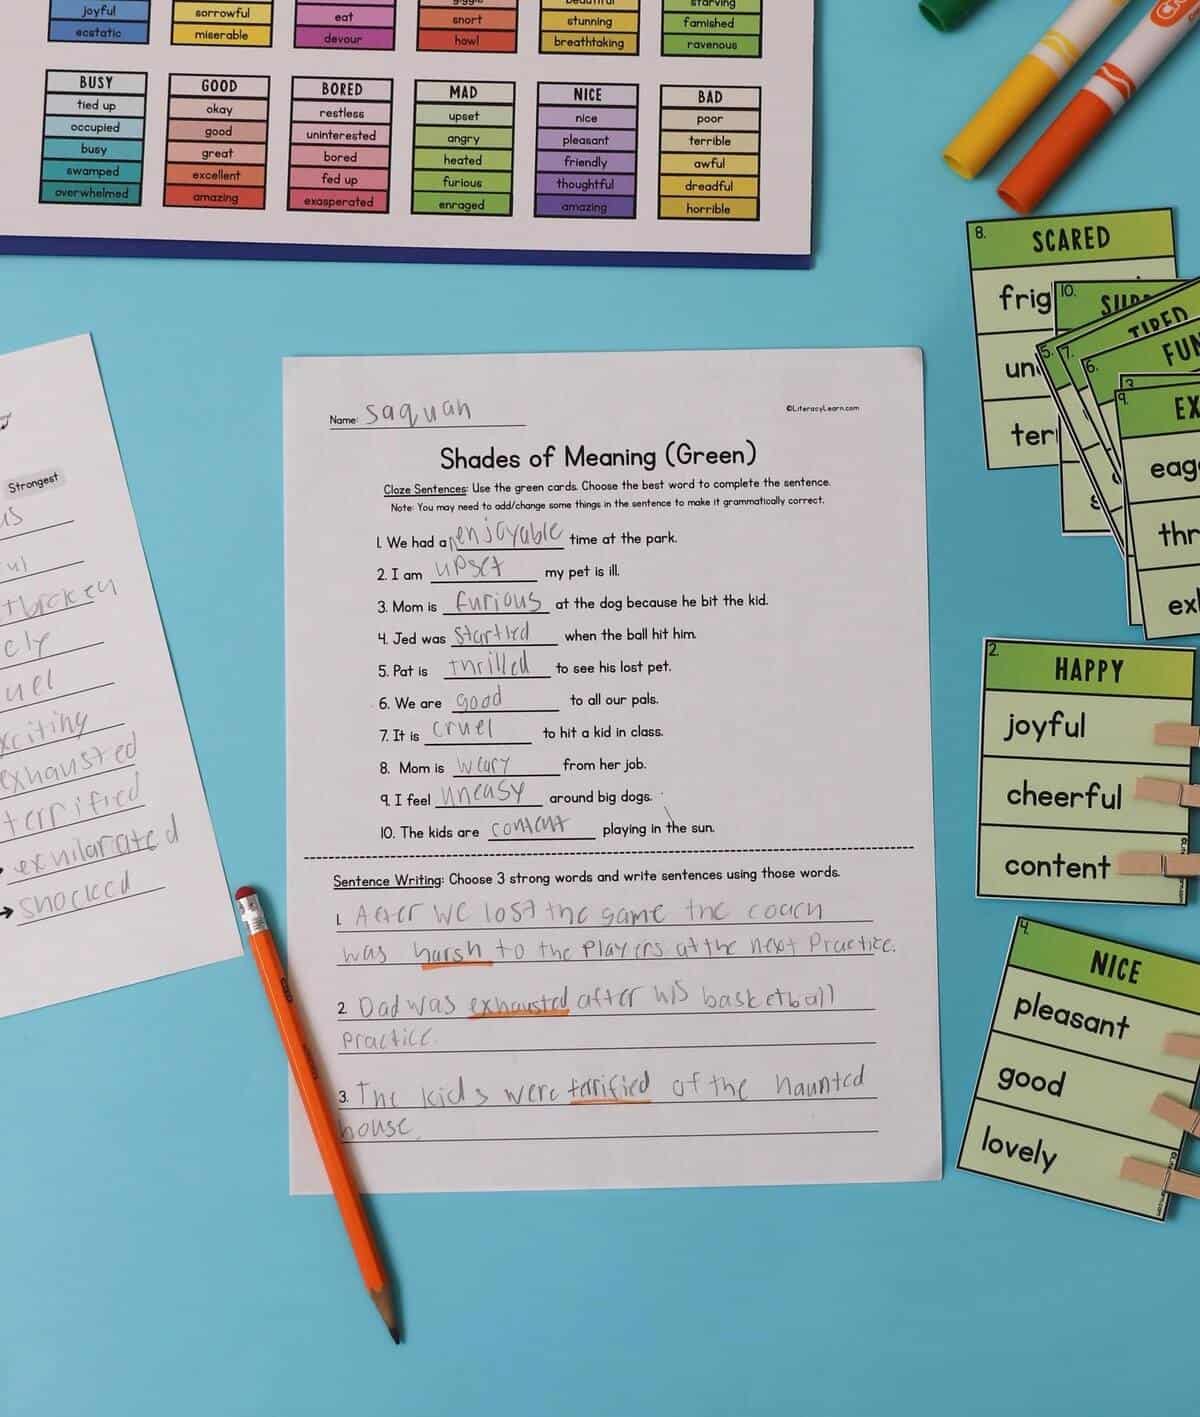 joyful
ecstatic
sorrowful
miserable
eat
devour
snort
howl
stunning
breathtaking
famished
ravenous
BUSY
tied up
occupied
busy
swamped
overwhelmed
GOOD
okay
good
great
excellent
amazing
BORED
restless
uninterested
bored
fed up
exasperated
MAD
upset
angry
heated
furious
enraged
NICE
nice
pleasant
friendly
thoughtful
amazing
BAD
poor
terrible
awful
dreadful
horrible
Strongest
exhausted
terrified
exhilarated
shocked
Name: saquan
©LiteracyLearn.com
Shades of Meaning (Green)
Cloze Sentences: Use the green cards. Choose the best word to complete the sentence.
Note: You may need to add/change some things in the sentence to make it grammatically correct.
1. We had an enjoyable time at the park.
2. I am upset my pet is ill.
3. Mom is furious at the dog because he bit the kid.
4. Jed was startled when the ball hit him.
5. Pat is thrilled to see his lost pet.
6. We are good to all our pals.
7. It is cruel to hit a kid in class.
8. Mom is weary from her job.
9. I feel uneasy around big dogs.
10. The kids are content playing in the sun.
Sentence Writing: Choose 3 strong words and write sentences using those words.
1. After we lost the game the coach
was harsh to the players at the next practice.
2. Dad was exhausted after his basketball
practice.
3. The kids were terrified of the haunted
house.
8.
SCARED
frig
un
ter
10.
5.
7.
TIRED
6.
FUN
3.
9.
EX
eag
thr
ex
2.
HAPPY
joyful
cheerful
content
4.
NICE
pleasant
good
lovely